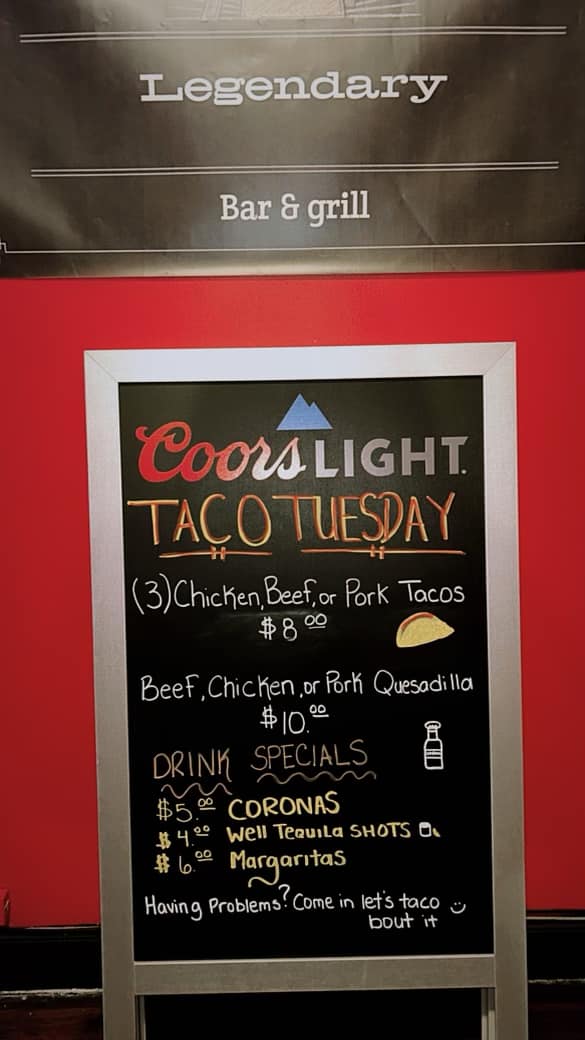 Legendary
Bar & grill
Coors LIGHT
TACO TUESDAY
(3) Chicken, Beef, or Pork Tacos
$8.00
Beef, Chicken, or Pork Quesadilla
$10.00
DRINK SPECIALS
$5.00 CORONAS
$4.00 Well Tequila SHOTS
$6.00 Margaritas
Having Problems? Come in let's taco
bout it